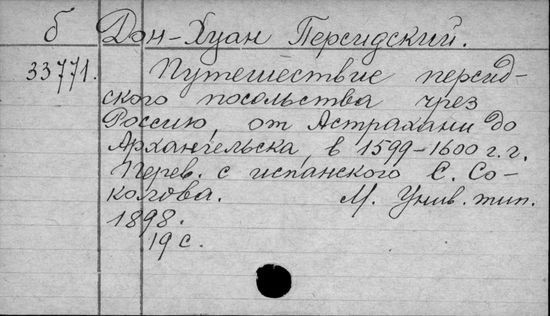 б Дон-Хуан Персидский.
33771. Путешествие персид-
ского посольства чрез
Россию, от Астрахани до
Архангельска, в 1599-1600 г.г.
Перев. с испанского С. Со-
колова. М. Унив. тип.
1898.
19 с.